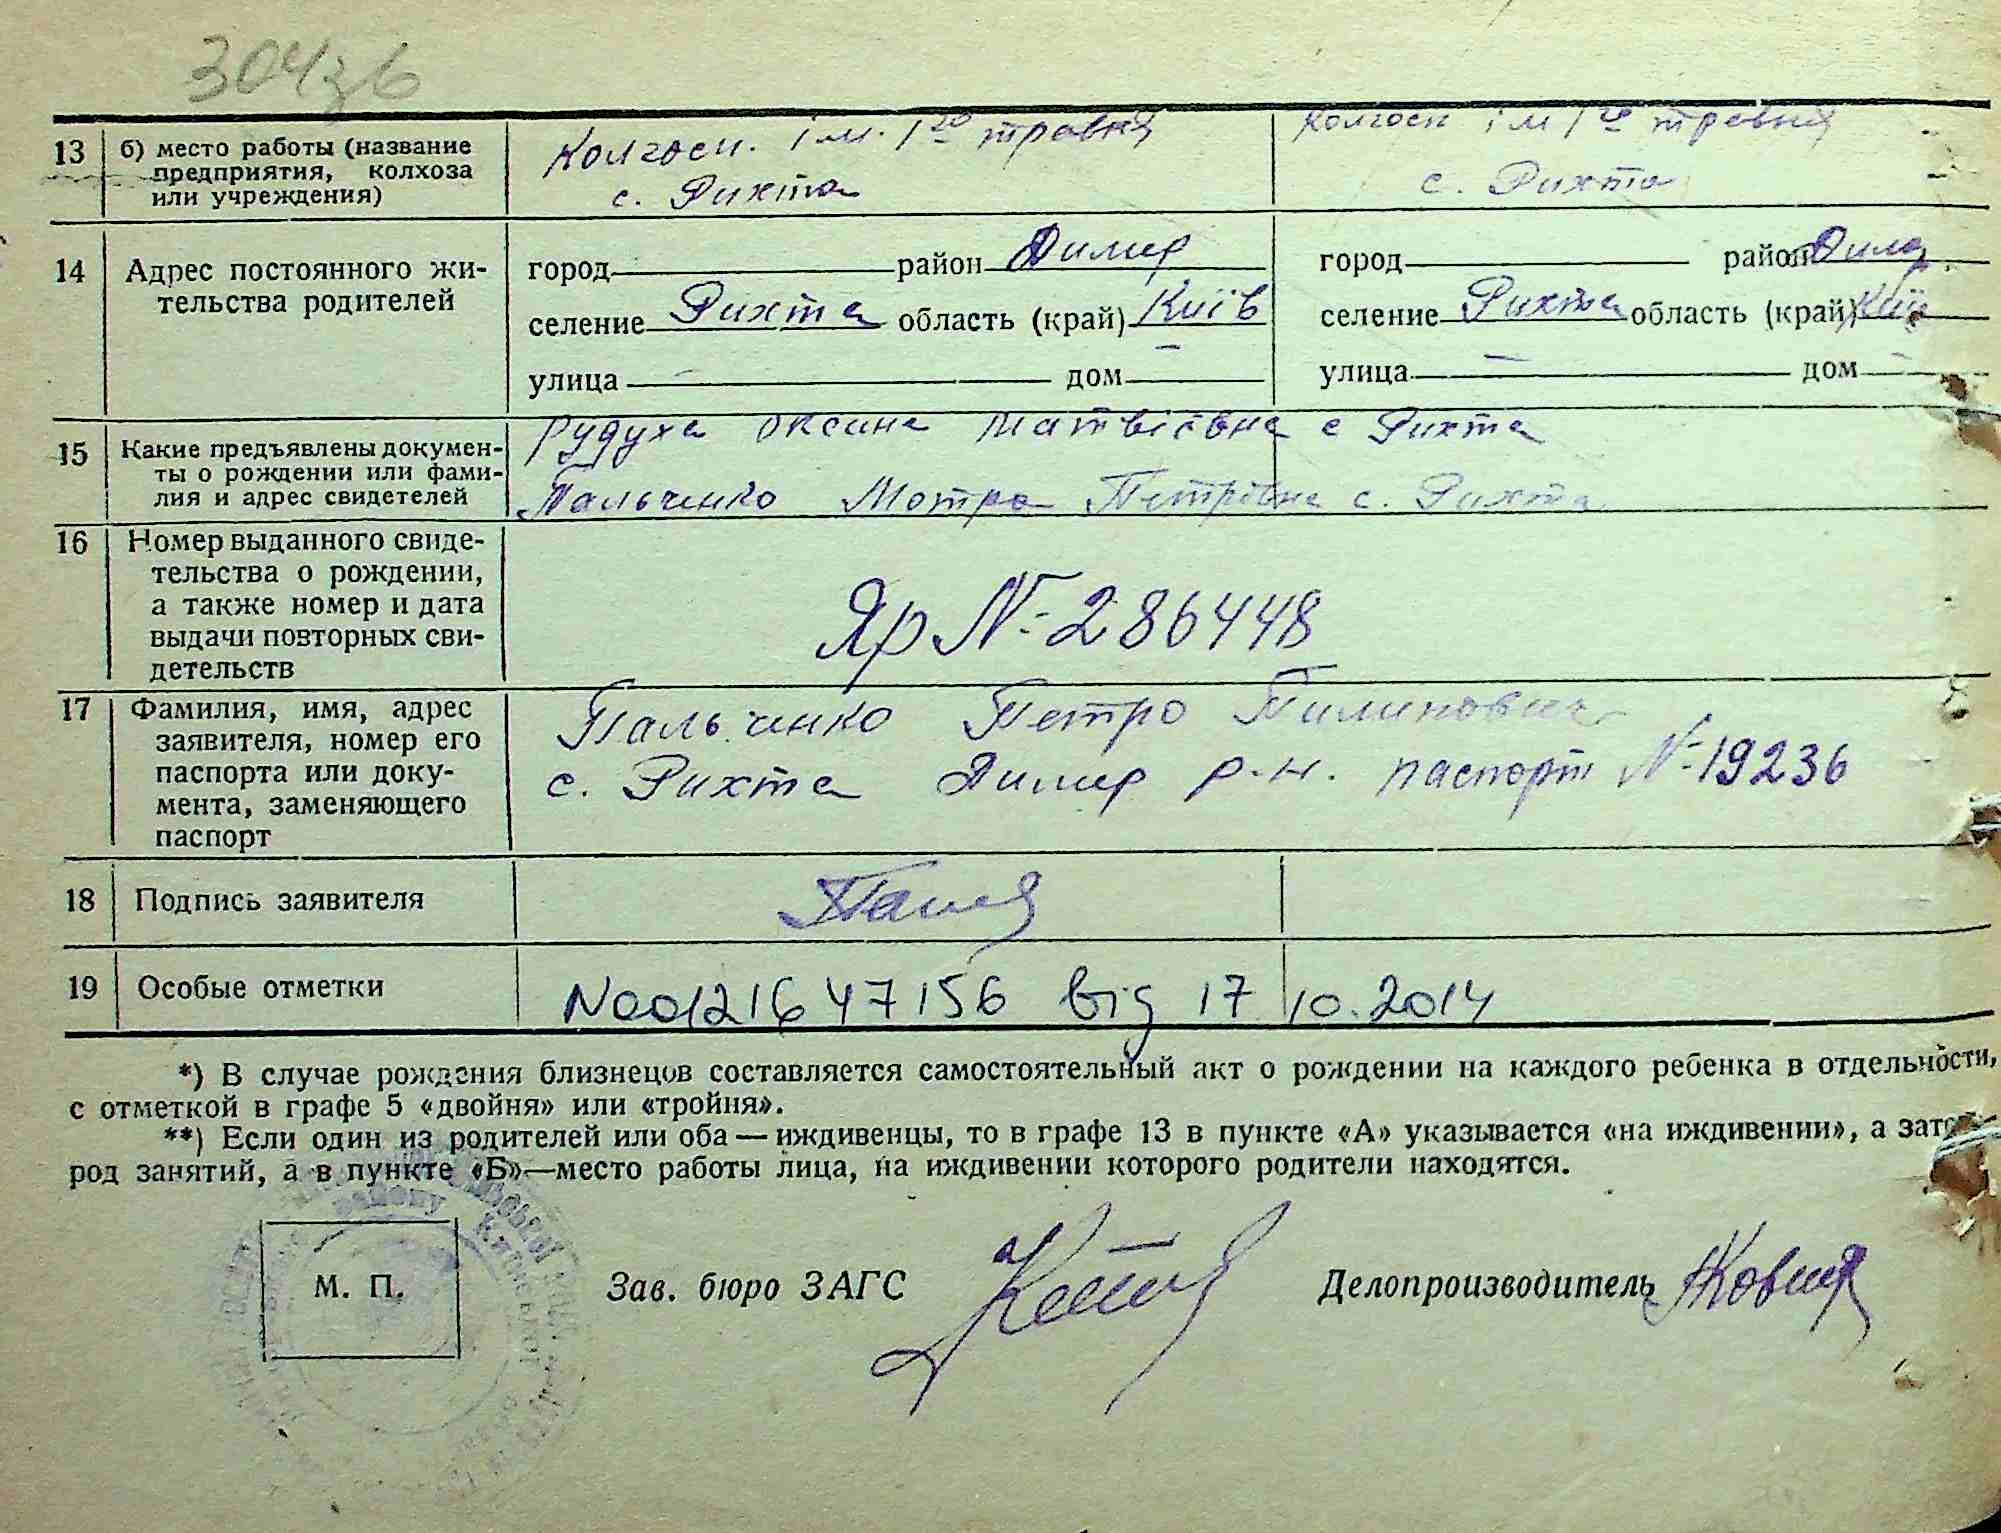 304зв
13 б) место работы (название предприятия, колхоза или учреждения)
Колгосп. ім. 1го травня
с. Рихта
Колгосп ім 1го травня
с. Рихта
14 Адрес постоянного жительства родителей
город район Димер
селение Рихта область (край) Київ
улица — дом —
город район Димер
селение Рихта область (край) Київ
улица — дом —
15 Какие предъявлены докумен-
ты о рождении или фами-
лия и адрес свидетелей
Рудуха Оксана Матвіївна с Рихта
Пальченко Мотра Петрівна с. Рихта
16 Номер выданного свиде-
тельства о рождении,
а также номер и дата
выдачи повторных сви-
детельств
Яр № 286448
17 Фамилия, имя, адрес
заявителя, номер его
паспорта или доку-
мента, заменяющего
паспорт
Пальченко Петро Пилипович
с. Рихта Димер р-н. паспорт № 19236
18 Подпись заявителя
19 Особые отметки
N00121647156 від 17 10.2014
*) В случае рождения близнецов составляется самостоятельный акт о рождении на каждого ребенка в отдельности,
с отметкой в графе 5 «двойня» или «тройня».
**) Если один из родителей или оба — иждивенцы, то в графе 13 в пункте «А» указывается «на иждивении», а затем
род занятий, а в пункте «Б»—место работы лица, на иждивении которого родители находятся.
М. П.
Зав. бюро ЗАГС
Делопроизводитель